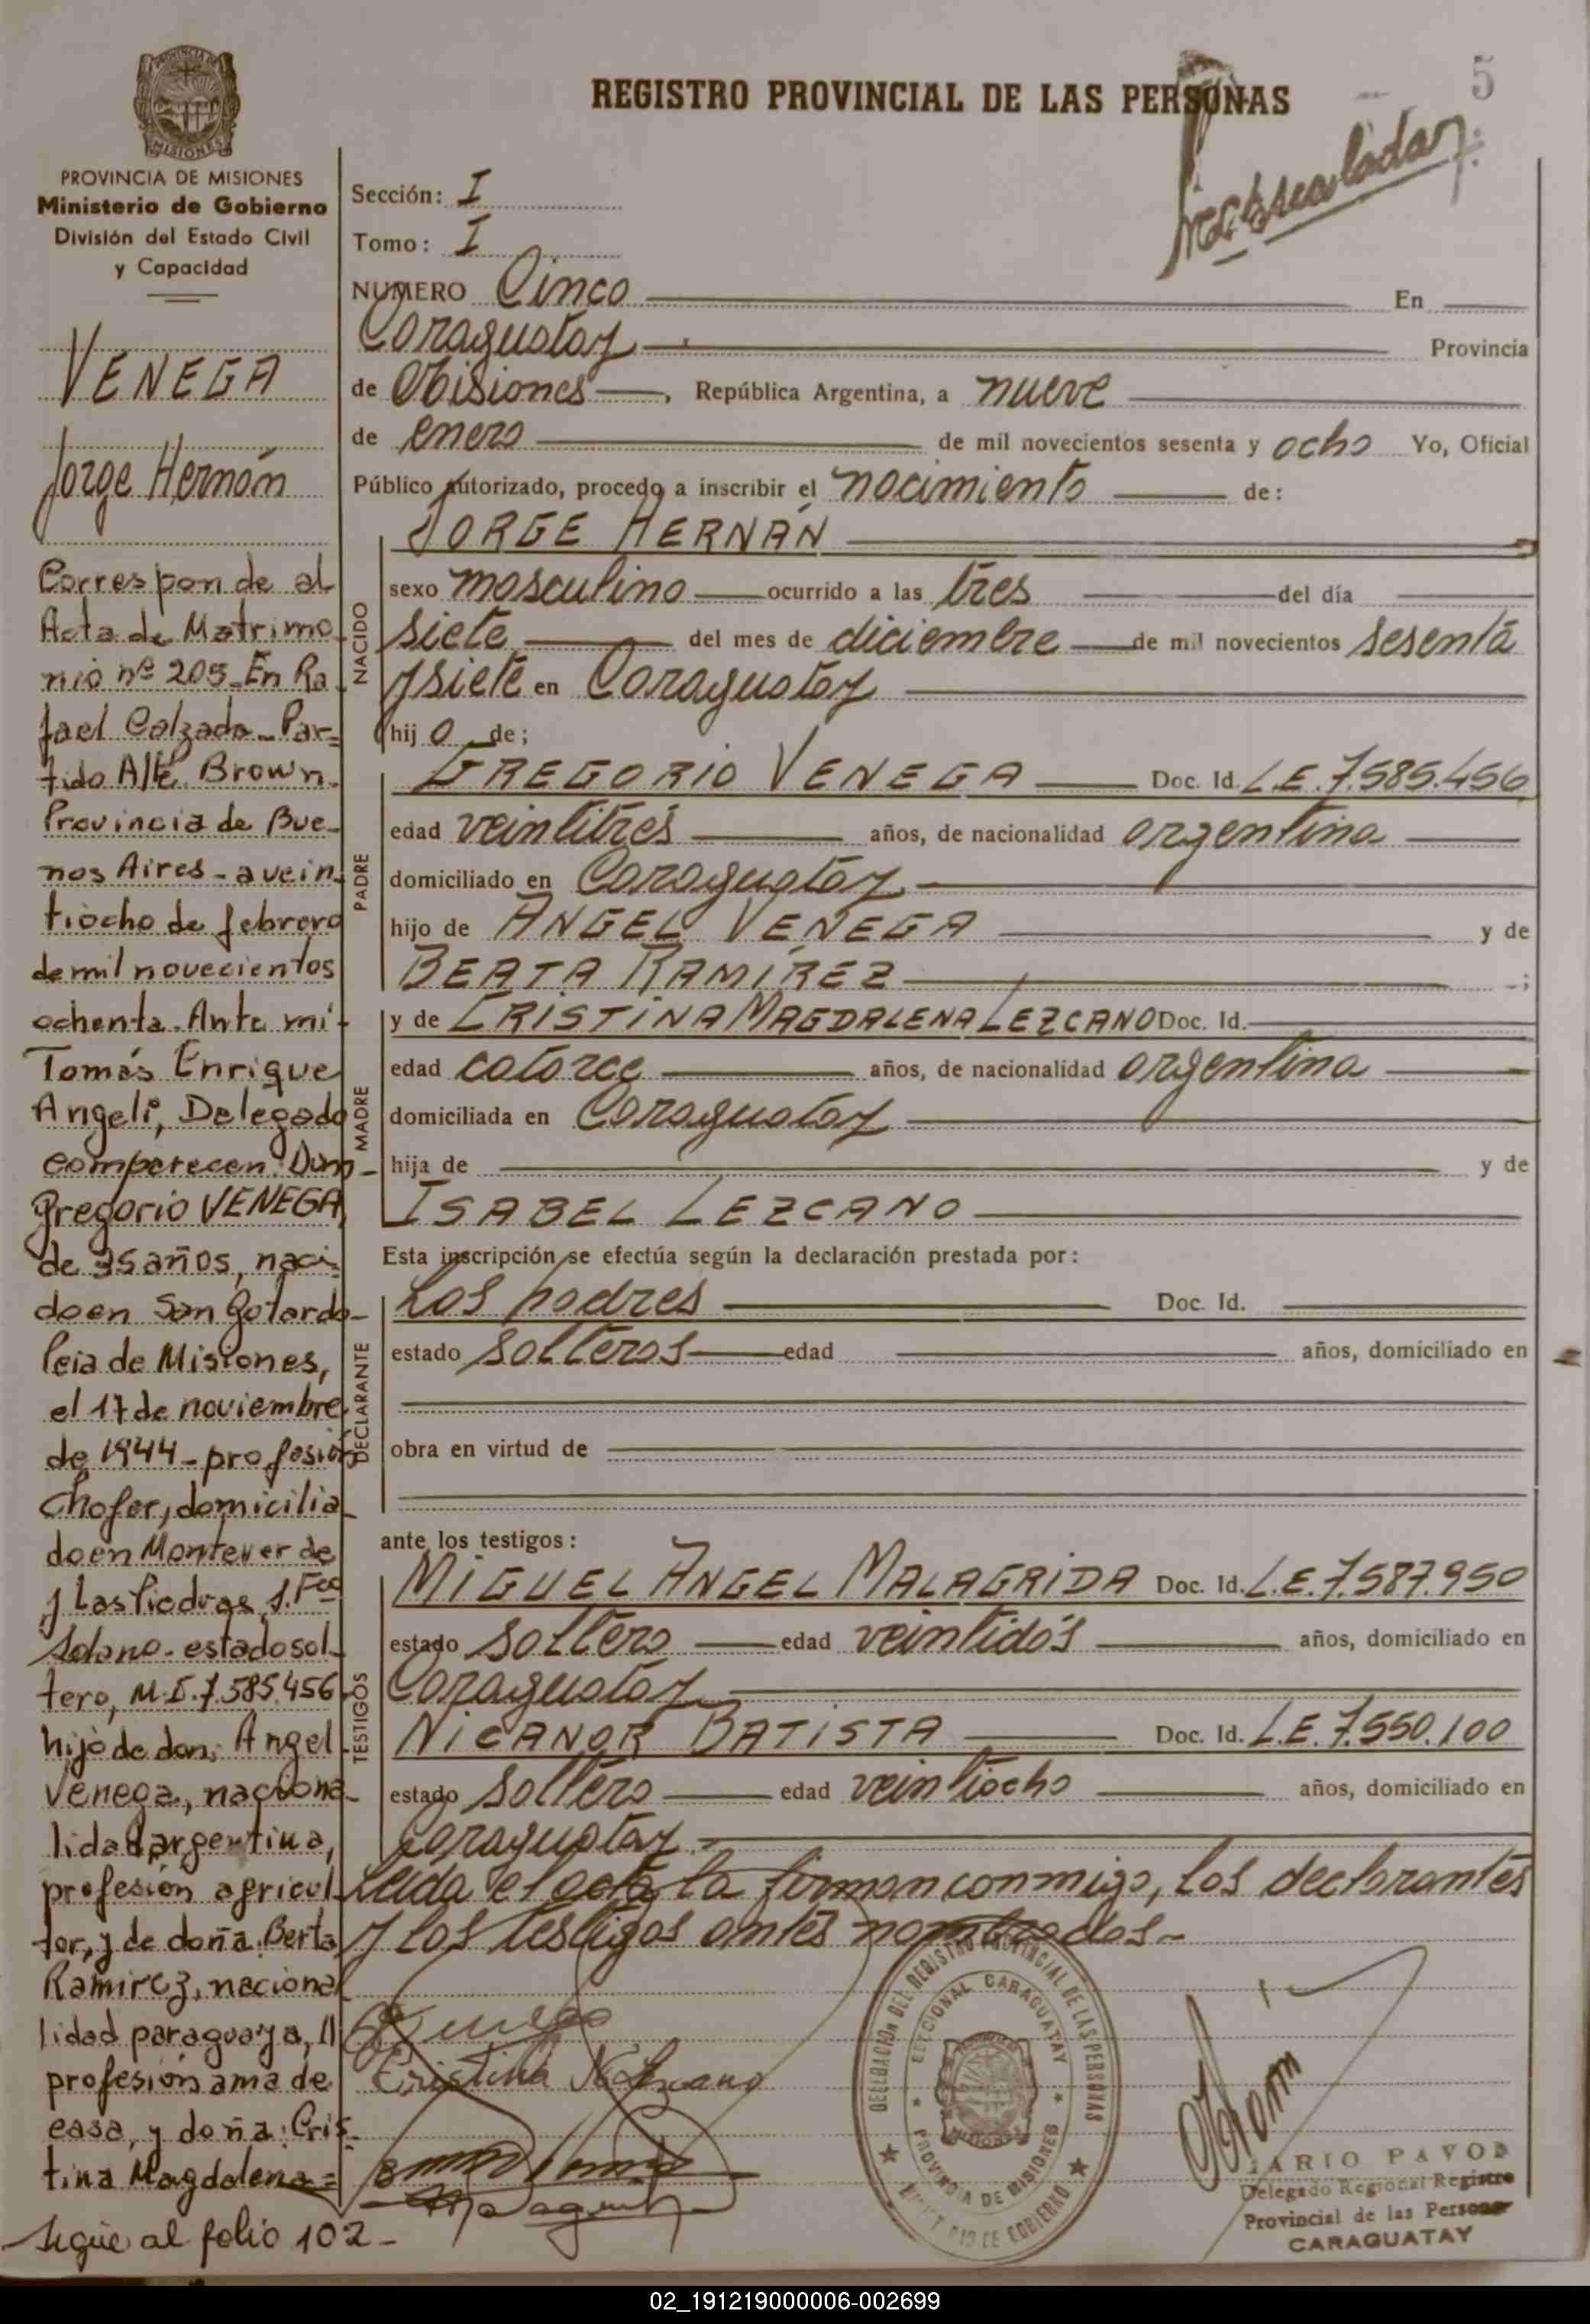 5
REGISTRO PROVINCIAL DE LAS PERSONAS
PROVINCIA DE MISIONES
MISIONES
PROVINCIA DE MISIONES
Ministerio de Gobierno
División del Estado Civil
y Capacidad
VENEGA
Jorge Hernán
Corresponde al
Acta de Matrimo
nio nº 205_En Ra
fael Calzada_Par=
tido Alte. Brown.
Provincia de Bue-
nos Aires - a vein
tiocho de febrero
de mil novecientos
ochenta. Ante mí-
Tomás Enrique
Angeli, Delegado
comparecen: Don
Gregorio VENEGA,
de 35 años, naci-
do en San Gotardo-
Pcia de Misiones,
el 17 de noviembre
de 1944 - profesión
Chofer, domicilia-
do en Montever de
y Las Piedras, S. Fco
Solano - estado sol-
tero, M.I. 7.585.456
hijo de don: Angel
Venega, naciona-
lidad argentina,
profesión agricul
tor, y de doña Berta
Ramirez, naciona
lidad paraguaya,
profesión ama de
casa, y doña: Cris-
tina Magdalena=
Sigue al folio 102-
Sección: I
Tomo: I
NUMERO Cinco En
Caraguatay Provincia
de Misiones, República Argentina, a nueve
de enero de mil novecientos sesenta y ocho Yo, Oficial
Público autorizado, procedo a inscribir el nacimiento de:
NACIDO
JORGE HERNÁN
sexo masculino ocurrido a las tres del día
siete del mes de diciembre de mil novecientos sesenta
y siete en Caraguatay
hij o de;
PADRE
GREGORIO VENEGA Doc. Id. L.E. 7.585.456
edad veintitrés años, de nacionalidad argentina
domiciliado en Caraguatay
hijo de ANGEL VENEGA y de
BERTA RAMÍREZ ;
MADRE
y de CRISTINA MAGDALENA LEZCANO Doc. Id.
edad catorce años, de nacionalidad argentina
domiciliada en Caraguatay
hija de y de
ISABEL LEZCANO
Esta inscripción se efectúa según la declaración prestada por:
DECLARANTE
Los padres Doc. Id.
estado solteros edad años, domiciliado en
obra en virtud de
ante los testigos:
TESTIGOS
MIGUEL ANGEL MALAGRIDA Doc. Id. L.E. 7.587.950
estado soltero edad veintidós años, domiciliado en
Caraguatay
NICANOR BATISTA Doc. Id. L.E. 7.550.100
estado soltero edad veintiocho años, domiciliado en
Caraguatay
Leida el acta la firman conmigo, los declarantes
y los testigos antes nombrados-
Cristina M Lezcano
DELEGACION DEL REGISTRO PROVINCIAL DE LAS PERSONAS
SECCIONAL CARAGUATAY
PROVINCIA DE MISIONES
MINISTERIO DE GOBIERNO
MARIO PAVON
Delegado Regional Registro
Provincial de las Personas
CARAGUATAY
02_191219000006-002699